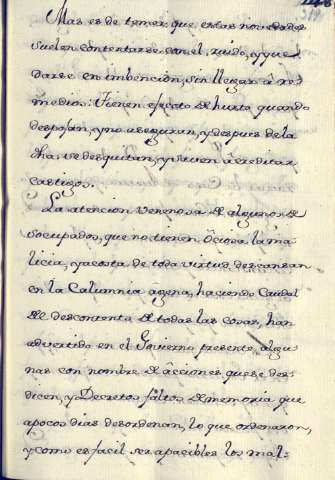 Mas es de temer que estas novedades
suelen contentarse con el ruido, y que
darse en imbención, sin llegar â re=
medios: Tienen efecto de hurto quando
despojan, y no aseguran, y despues de la
dha. se desquitan, y sirven â creditar
castigos.
La atencion venenosa de algunos de
socupados, que no tienen Ôciosa la ma
licia, y acosta de toda virtud, descansan
en la Calumnia agena, haciendo Caudal
del descontento de todas las cosas, han
advertido en el Govierno presente, algu
nas con nombre de âcciones que se des
dicen, y Decretos faltos de memoria que
apocos dias desordenan, lo que ordenaron,
y como es facil ser apacibles los mal=